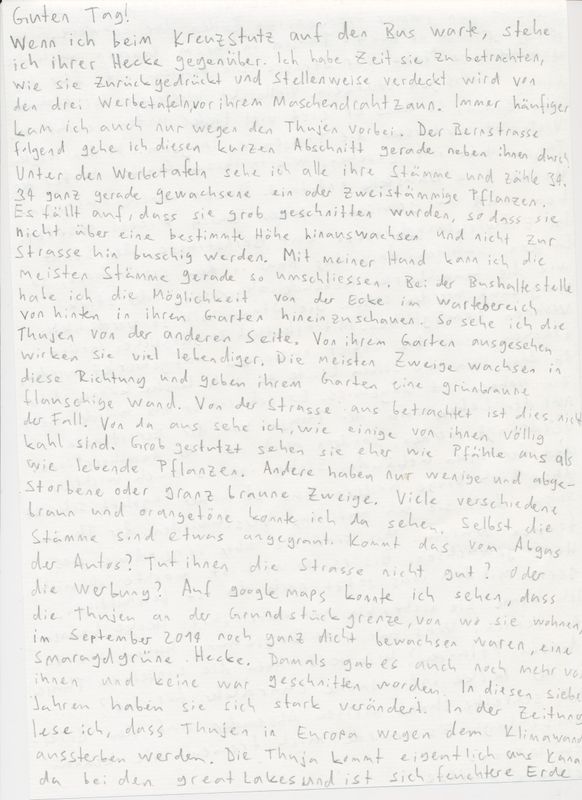 Guten Tag!
Wenn ich beim Kreuzstutz auf den Bus warte, stehe
ich ihrer Hecke gegenüber. Ich habe Zeit sie zu betrachten,
wie sie zurückgedrückt und stellenweise verdeckt wird von
den drei Werbetafeln, vor ihrem Maschendrahtzaun. Immer häufiger
kam ich auch nur wegen den Thujen vorbei. Der Bernstrasse
folgend gehe ich diesen kurzen Abschnitt gerade neben ihnen durch
Unter den Werbetafeln sehe ich alle ihre Stämme und zähle 34.
34 ganz gerade gewachsene ein oder zweistämmige Pflanzen.
Es fällt auf, dass sie grob geschnitten wurden, so dass sie
nicht über eine bestimmte Höhe hinauswachsen und nicht zur
Strasse hin buschig werden. Mit meiner Hand kann ich die
meisten Stämme gerade so umschliessen. Bei der Bushaltestelle
habe ich die Möglichkeit von der Ecke im Wartebereich
von hinten in ihren Garten hineinzuschauen. So sehe ich die
Thujen von der anderen Seite. Von ihrem Garten ausgesehen
wirken sie viel lebendiger. Die meisten Zweige wachsen in
diese Richtung und geben ihrem Garten eine grünbraune
flauschige Wand. Von der Strasse aus betrachtet ist dies nicht
der Fall. Von da aus sehe ich, wie einige von ihnen völlig
kahl sind. Grob gestutzt sehen sie eher wie Pfähle aus als
wie lebende Pflanzen. Andere haben nur wenige und abge-
storbene oder ganz braune Zweige. Viele verschiedene
braun und orangetöne konnte ich da sehen. Selbst die
Stämme sind etwas angegraut. Kommt das vom Abgas
der Autos? Tut ihnen die Strasse nicht gut? Oder
die Werbung? Auf google maps konnte ich sehen, dass
die Thujen an der Grundstückgrenze, von wo sie wohnen,
im September 2014 noch ganz dicht bewachsen waren, eine
Smaragdgrüne Hecke. Damals gab es auch noch mehr von
ihnen und keine war geschnitten worden. In diesen sieben
Jahren haben sie sich stark verändert. In der Zeitung
lese ich, dass Thujen in Europa wegen dem Klimawand
aussterben werden. Die Thuja kommt eigentlich aus Kana
da bei den great Lakes und ist sich feuchtere Erde